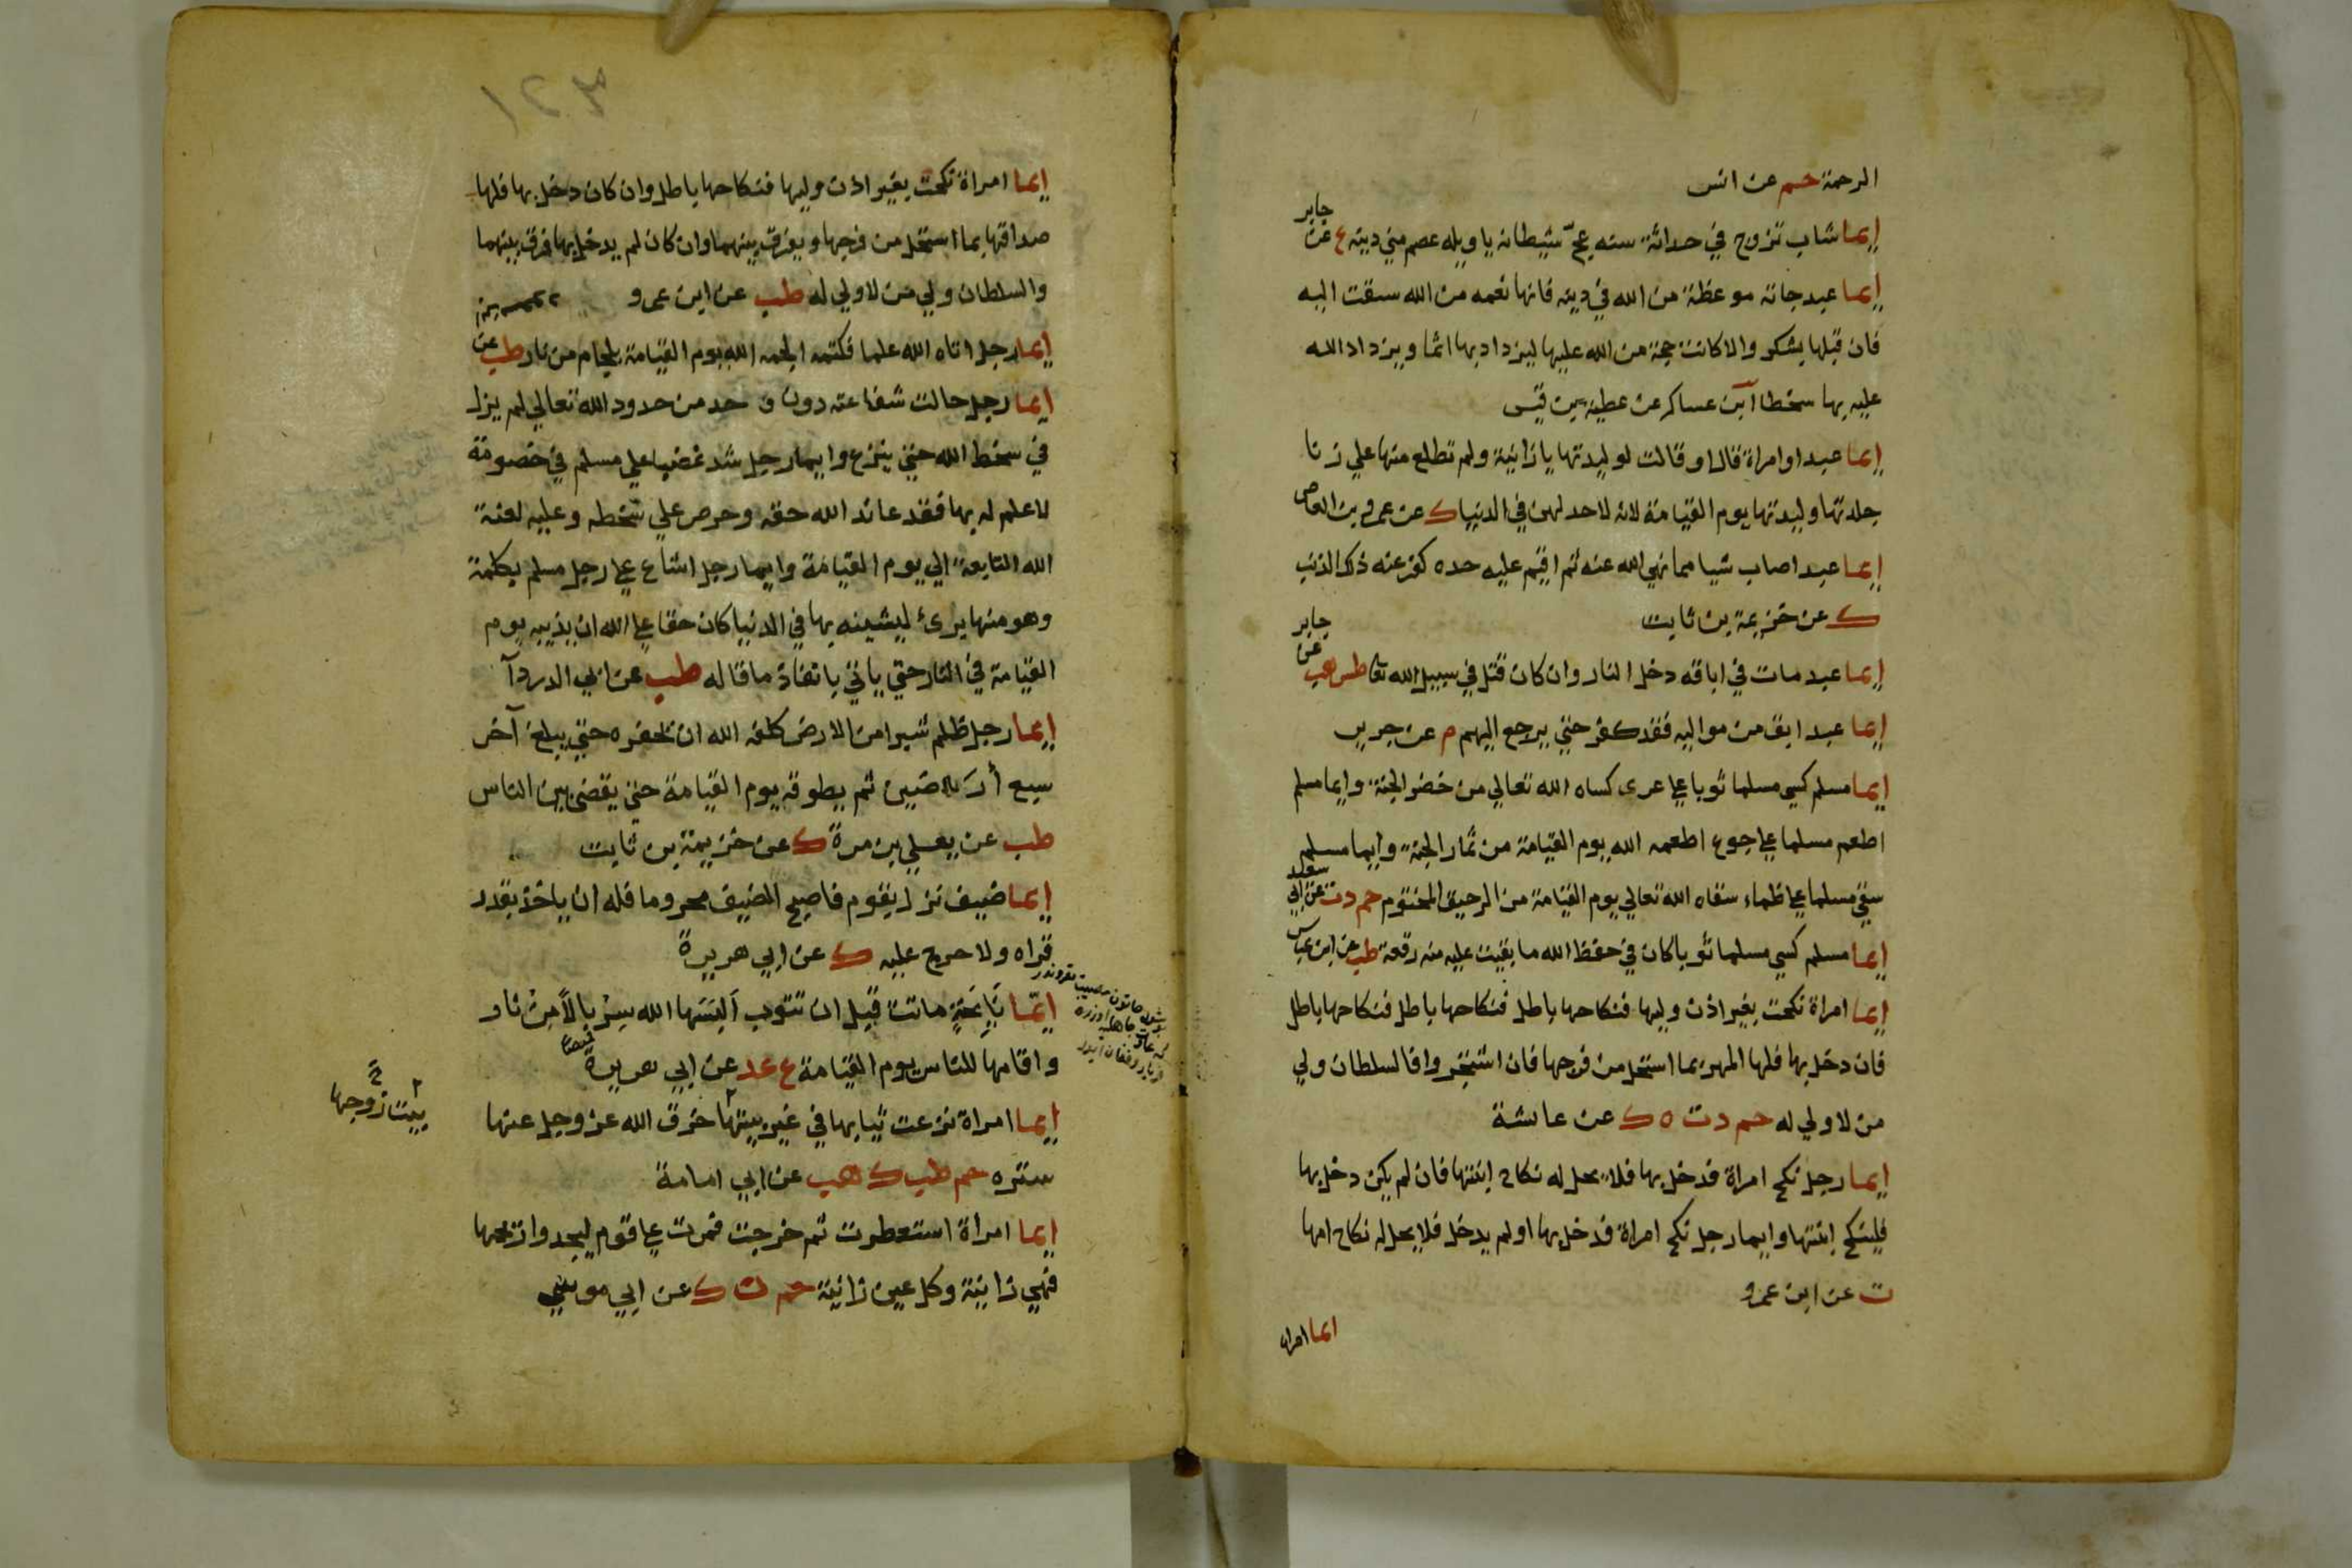 الرحمة حم عن انس
إيما شاب تزوج في حداثة سنه عج شيطانه يا ويله عصم مني دينه ع عن جابر
إيما عبد جاته موعظة من الله في دينه فانها نعمه من الله سيقت اليه
فان قبلها بشكر والا كانت حجة من الله عليه ليزداد بها اثما ويزداد الله
عليه بها سخطا ابن عساكر عن عطية بن قيس
إيما عبد او امراة قال او قالت لوليدتها يا زانية ولم تطلع منها علي زنا
جلدتها وليدتها يوم القيامة لانه لا حد لهن في الدنيا ك عن عمرو بن العاص
إيما عبد اصاب شيا مما نهي الله عنه ثم اقيم عليه حده كفر عنه ذلك الذنب
ك عن خزيمة بن ثابت
إيما عبد مات في اباقه دخل النار وان كان قتل في سبيل الله تعا طس هب عن جابر
إيما عبد ابق من مواليه فقد كفر حتي يرجع اليهم م عن جرير
إيما مسلم كسي مسلما ثوبا علي عري كساه الله تعالي من خضر الجنة وايما مسلم
اطعم مسلما علي جوع اطعمه الله يوم القيامة من ثمار الجنة وايما مسلم
سقي مسلما علي ظماء سقاه الله تعالي يوم القيامة من الرحيق المختوم حم د ت عن ابي سعيد
إيما مسلم كسي مسلما ثوبا كان في حفظ الله ما بقيت عليه منه رقعة طب عن ابن عباس
إيما امراة نكحت بغير اذن وليها فنكاحها باطل فنكاحها باطل فنكاحها باطل
فان دخل بها فلها المهر بما استحل من فرجها فان اشتجروا فالسلطان ولي
من لا ولي له حم د ت ه ك عن عائشة
إيما رجل نكح امراة فدخل بها فلا يحل له نكاح ابنتها فان لم يكن دخل بها
فلينكح ابنتها وايما رجل نكح امراة فدخل بها او لم يدخل فلا يحل له نكاح امها
ت عن ابن عمرو
ايما امراة
إيما امراة نكحت بغير اذن وليها فنكاحها باطل وان كان دخل بها فلها
صداقها بما استحل من فرجها ويفرق بينهما وان كان لم يدخل بها فرق بينهما
والسلطان ولي من لا ولي له طب عن ابن عمرو
إيما رجل اتاه الله علما فكتمه الجمه الله يوم القيامة بلجام من نار طب عن
إيما رجل حالت شفاعته دون حد من حدود الله تعالي لم يزل
في سخط الله حتي ينزع وايما رجل شد غضبا علي مسلم في خصومة
لا علم له بها فقد عاند الله حقه وحرص علي سخطه وعليه لعنة
الله التابعة الي يوم القيامة وايما رجل اشاع علي رجل مسلم بكلمة
وهو منها بريء ليشينه بها في الدنيا كان حقا علي الله ان يذيبه يوم
القيامة في النار حتي ياتي بانفاذ ما قال له طب عن ابي الدرداء
إيما رجل ظلم شبرا من الارض كلفه الله ان يحفره حتي يبلغ آخر
سبع أرضين ثم يطوقه يوم القيامة حتي يقضي بين الناس
طب عن يعلي بن مرة ك عن خزيمة بن ثابت
إيما ضيف نزل بقوم فاصبح الضيف محروما فله ان ياخذ بقدر
قراه ولا حرج عليه ك عن ابي هريرة
إيما نَائِحَةٍ ماتت قبل ان تتوب اَلبَسَها الله سِرْبالاً مِنْ نار
واقامها للناس يوم القيامة ع عد عن ابي هريرة
إيما امراة نزعت ثيابها في غير بيتها خرق الله عز وجل عنها
بيت زوجها
ستره حم طب ك هب عن ابي امامة
إيما امرأة استعطرت ثم خرجت فمرت علي قوم ليجدوا ريحها
فهي زانية وكل عين زانية حم ن ك عن ابي موسي